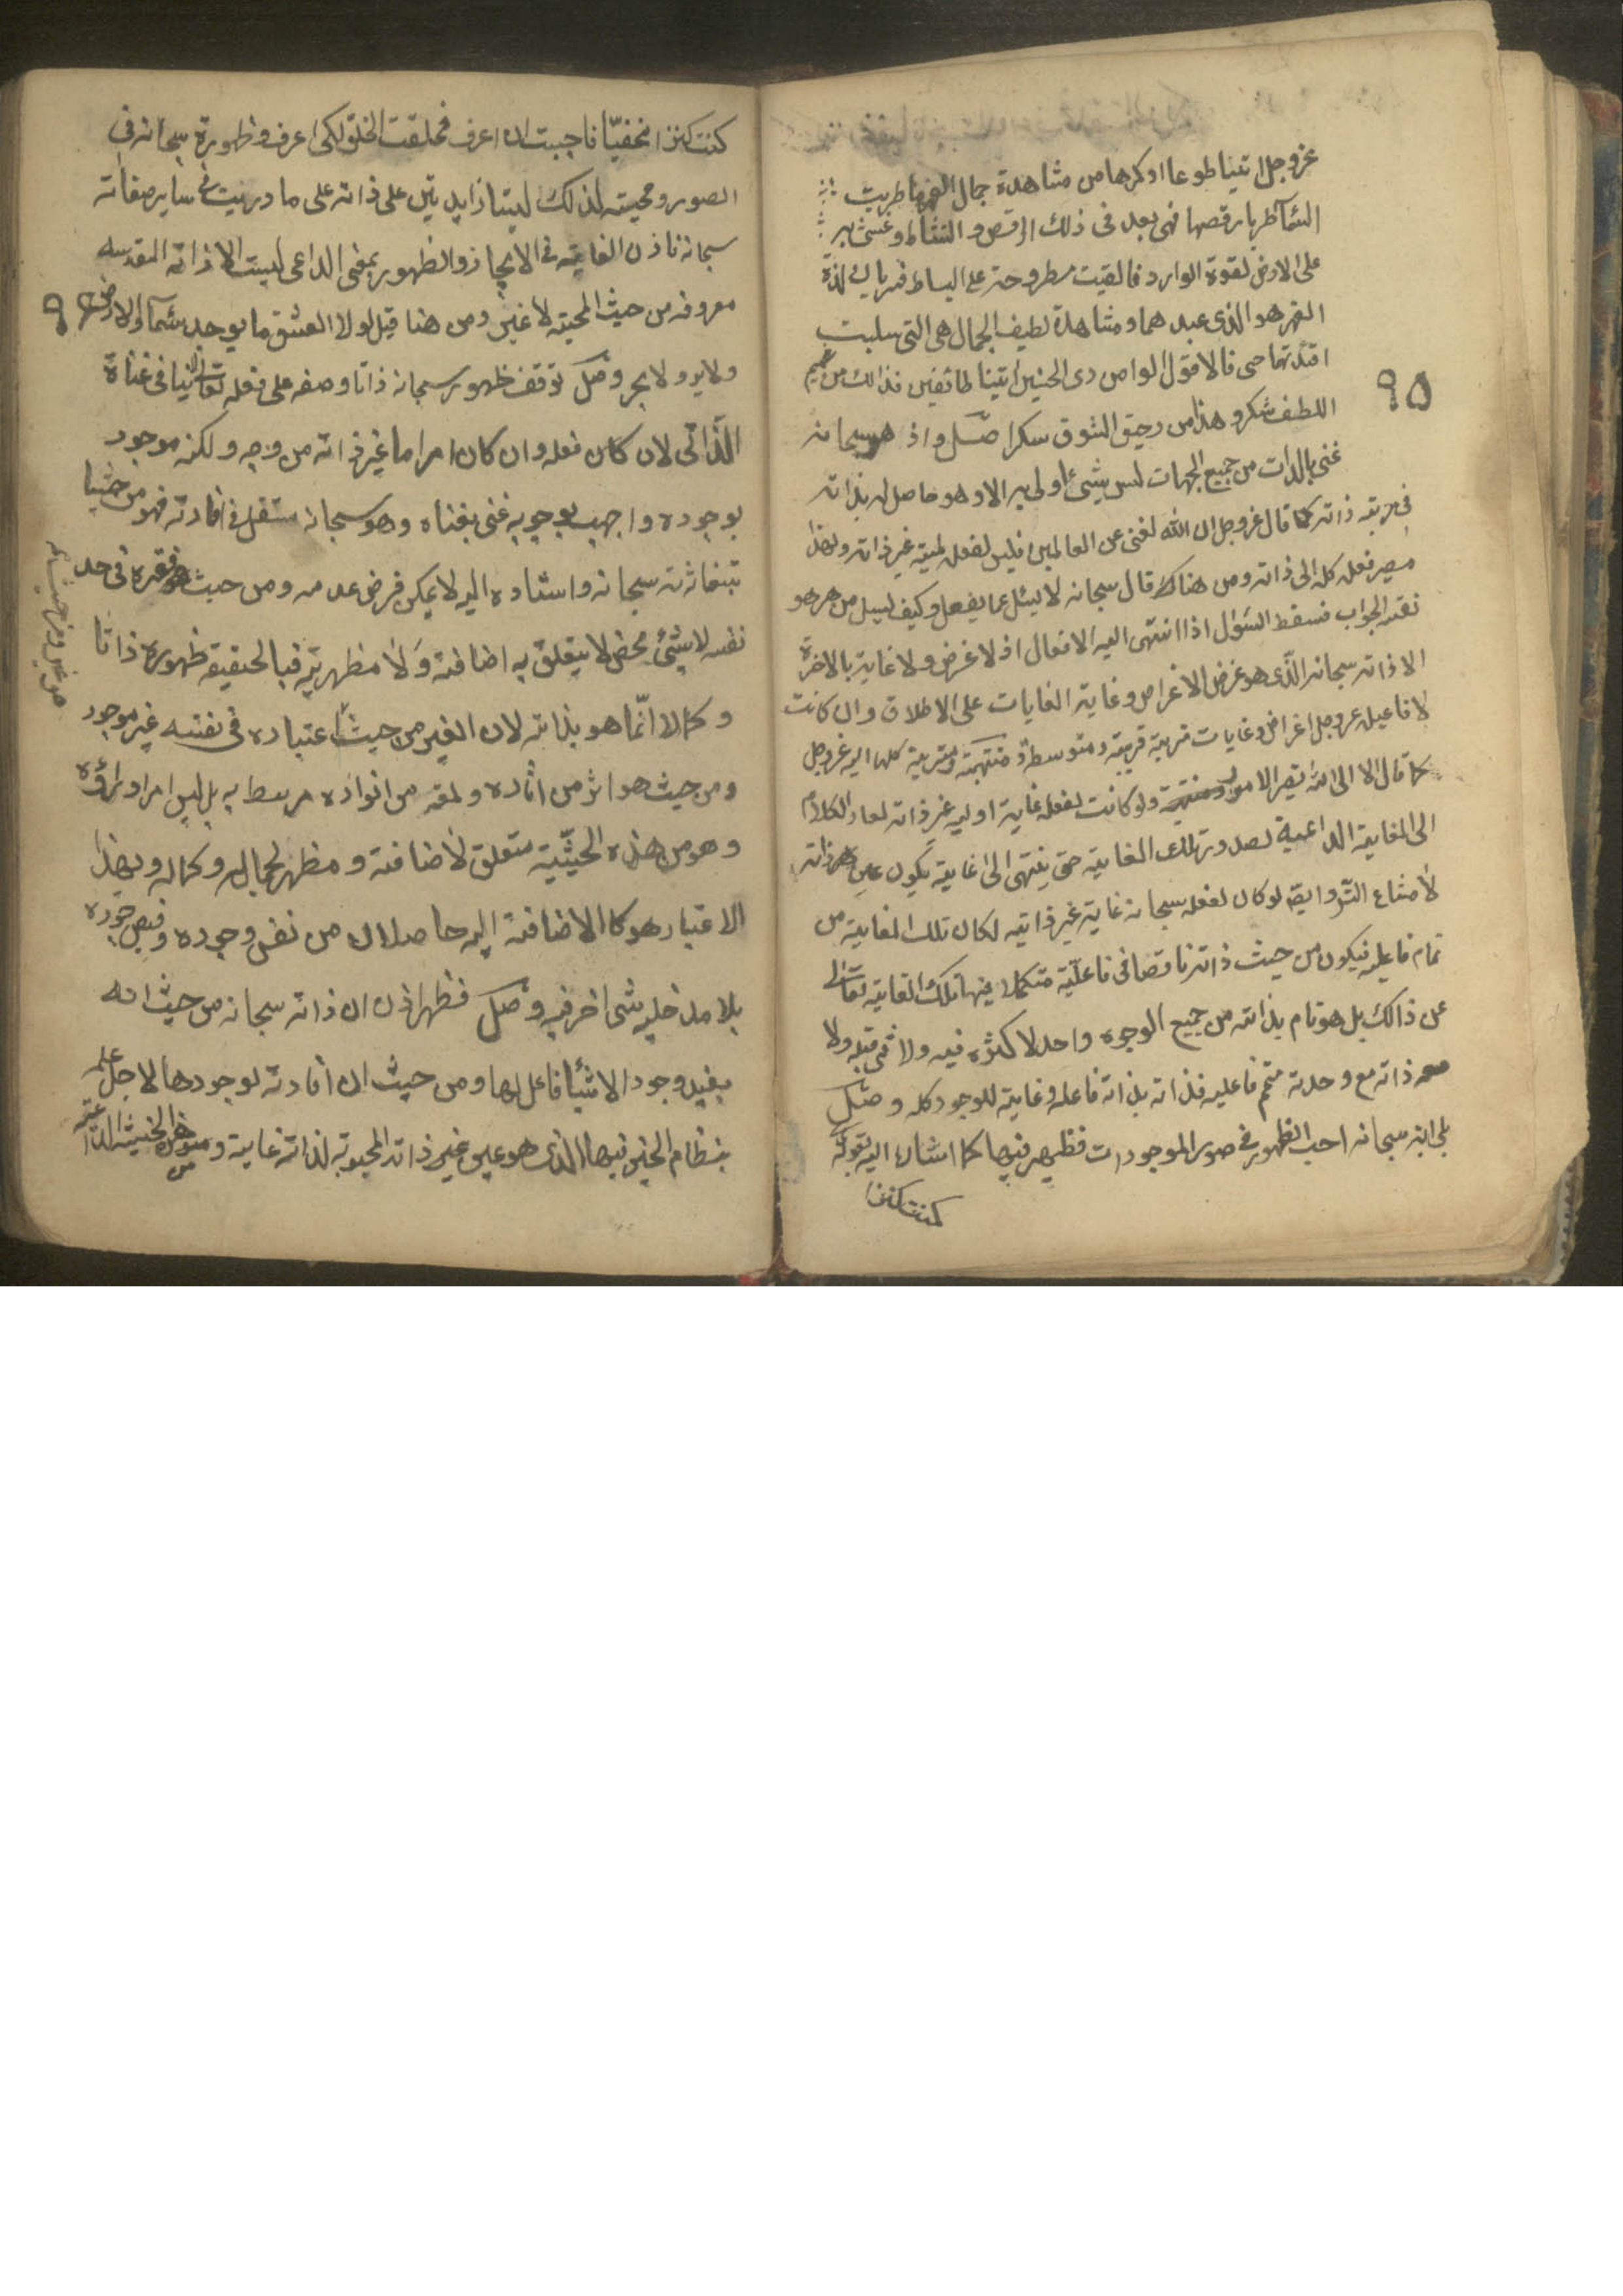 عزوجل ائتيا طوعا او كرها من مشاهدة جمال القهر طربت
السماء طربا رقصها فهى بعد فى ذلك الرقص والنشاط وغشى به
على الارض لقوة الوارد فالقيت مطروحة على البساط فسريان لذة
القهر هو الذى عبدهما ومشاهدة لطيف الجمال هى التى سلبت
افئدتهما حتى قالا قول الوامق ذى الحنين اتينا طائعين فذالك من عميم
٩٥
اللطف شكر وهذا من رحيق الشوق سكرا صل واذ هو سبحانه
غنى بالذات من جميع الجهات ليس شئ اولى به الا وهو حاصل له بذاته
فى مرتبه ذاته كما قال عزوجل ان الله لغنى عن العالمين فليس لفعله لمية غير ذاته ولهذا
مصير فعله كله الى ذاته ومن هناك قال سبحانه لا يسئل عما يفعل وكيف يسئل من هو هو
نفس الجواب فسقط السؤال اذا انتهى اليه الافعال اذ لا غرض ولا غاية بالاخرة
الا ذاته سبحانه الذى هو غرض الاغراض وغاية الغايات على الاطلاق وان كانت
لافاعيله عزوجل اغراض وغايات قريبة ومتوسطة منتهية كلها اليه عزوجل
كما قال الا الى الله تصير الامور ولو كانت لفعله غاية اولية غير ذاته لعاد الكلام
الى الغاية الداعية لصدور تلك الغاية حتى ينتهى الى غاية يكون عين ذاته
لامتناع التس وايضا لو كان لفعله سبحانه غاية غير ذاتيه لكان تلك الغاية من
تمام فاعليه فيكون من حيث ذاته ناقصا فى فاعليّة متكملا فيها بتلك الغاية تعالى
عن ذالك بل هو تام بذاته من جميع الوجوه واحد لا كثره فيه ولا شئ قبله ولا
معه ذاته مع وحدته متمم فاعليه فذاته بذاته فاعله وغاية للوجود كله وصل
بلى انه سبحانه احب الظهور فى صور الموجودات فظهر فيها كما اشار اليه بقوله
كنت كنزا
كنت كنزا مخفيّا فاحببت ان اعرف فخلقت الخلق لكى اعرف وظهورة سبحانه فى
الصور ومحبته لذلك ليستا زايدتين على ذاته على ما دريت فى ساير صفاته
سبحانه فاذن الغاية فى الايجاد والظهور بمعنى الداعى ليست الا ذاته المقدسه
معروفه من حيث المحبته لا غير ومن هنا قيل لولا العشق ما يوجد سماء ولا ارض
٩٦
ولا بر ولا بحر وصل توقف ظهوره سبحانه ذاتا وصفه على فعله تعالى لا ينافى غناه
الذّاتى لان كان فعله وان كان امرا ما غير ذاته من وجه ولكنه موجود
بوجوده واجب بوجوبه غنى بغناه وهو سبحانه مستقل فى افادته فهو من حيث
سبحانه واستناده اليه لا يمكن فرض عدمه ومن حيث فقره فى حد
نفسه لا شئ محض لا يتعلق به اضافته ولا مظهرية فبالحقيقه ظهوره ذاتا
وكمالا انّما هو بذاته لان الغير من حيث اعتباره فى نفسه غير موجود
ومن حيث هو اثر من اثاره ولمعه من انواره مرتبط به بل ليس امرا وراؤه
وهو من هذه الحيثية متعلق لاضافته ومظهر لجماله وكماله وبهذا
الاعتبار هو كالاضافة اليه حاصلان من نفس وجوده وفيض جوده
بلا مدخليه شى اخر فيه وصل فظهر اذن ان ذاته سبحانه من حيث انه
يفيد وجود الاشيا فاعل لها ومن حيث ان افادته لوجودها لاجل علمه
بنظام الخير فيها الذى هو عين غير ذاته المحبوبة لذاته غاية و